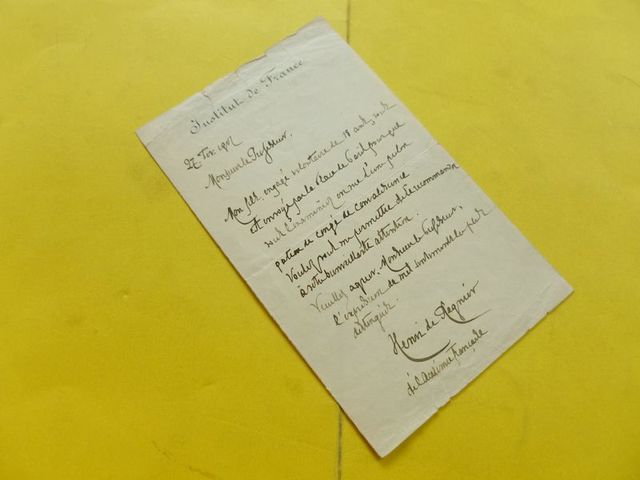 Institut de France
27 Nov.
Monsieur le Professeur,
Mon fils, engagé volontaire de 18 ans, vous
est envoyé par la Place de Paris pour que
vous l'examiniez en vue d'une prolon
gation de congé de convalescence
Voulez vous me permettre de le recommander
à votre bienveillante attention.
Veuillez agréer, Monsieur le Professeur,
l'expression de mes sentiments les plus
distingués.
Henri de Régnier
de l'académie française